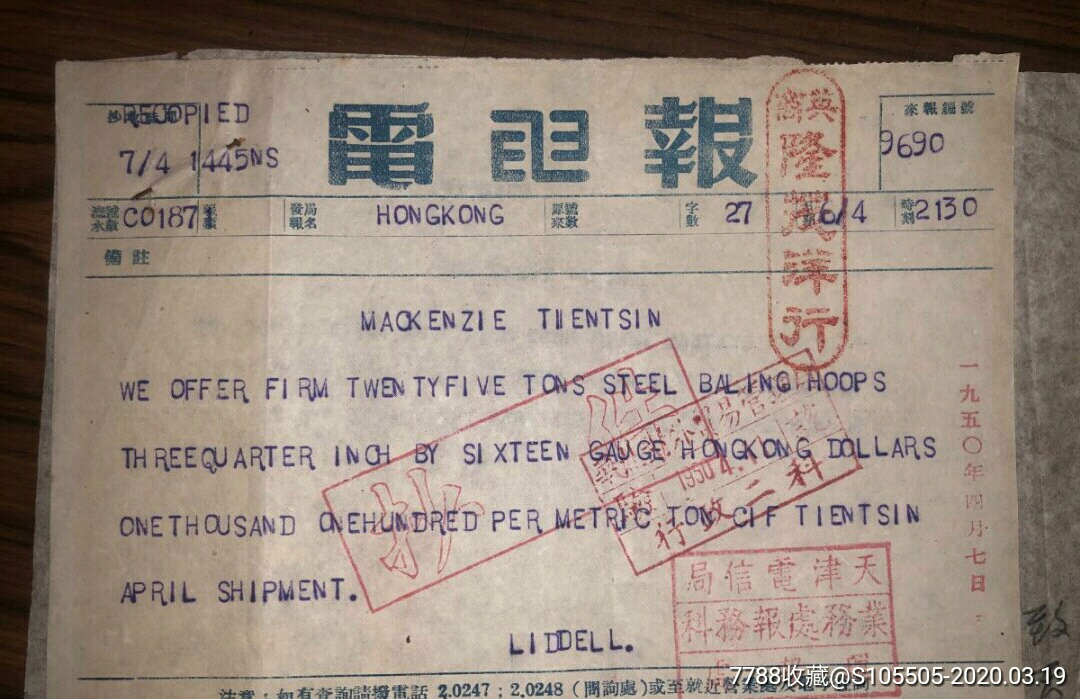 RECOPIED
7/4 1445NS
電 电 報
來報編號
9690
英商
隆茂洋行
CO187 發報局名 HONGKONG 原來號數 字數 27 6/4 時刻 2130
備註
MACKENZIE TIENTSIN
WE OFFER FIRM TWENTYFIVE TONS STEEL BALING HOOPS
THREEQUARTER INCH BY SIXTEEN GAUGE HONGKONG DOLLARS
ONETHOUSAND ONEHUNDRED PER METRIC TON CIF TIENTSIN
APRIL SHIPMENT.
LIDDELL.
一九五〇年四月七日
抄
1950.4.
天津電信局
業務處報務科
致
注意:如有查詢請撥電話 2.0247:2.0248(問詢處)或至就近營業處
7788收藏@S105505-2020.03.19